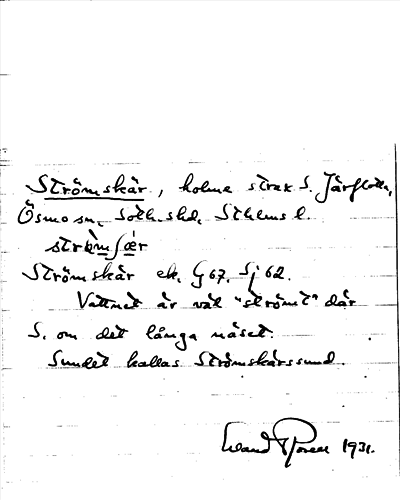 Strömskär, holme strax S. Järflotta,
Ösmo sn, Soth. shd, Sthlms l.
Strömskär ek. G 67. Sj 62.
Vattnet är väl "strömt" där
S. om det långa näset.
Sundet kallas Strömskärssund.
1931.